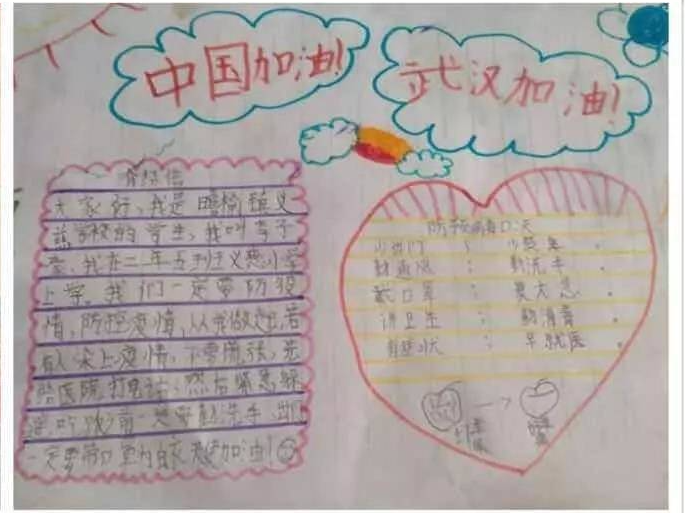 中国加油！
武汉加油！
大家好，我是瞻榆镇义
学校的学生，我叫李子
我在二年五班
上学。我们一定要防疫
情，防控疫情，从我做起，若
有人染上疫情，不要慌张，先
给医院打电话，然后紧急
吃饭前一定要勤洗手，出
一定要带口罩 加油！
防预病毒口决
少出门，少聚集。
勤通风，勤洗手。
戴口罩，莫大意。
讲卫生，勤消毒。
有症状，早就医。